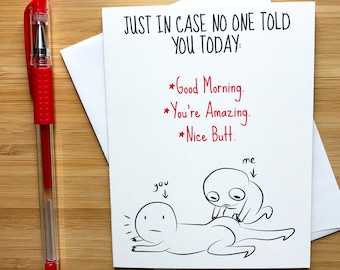 JUST IN CASE NO ONE TOLD
YOU TODAY:
*Good Morning.
*You're Amazing.
*Nice Butt.
me
you